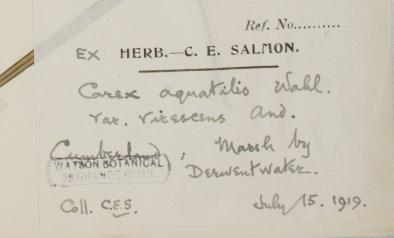 Ref. No..........
Ex HERB.—C. E. SALMON.
Carex aquatilis Wahl.
var. virescens And.
Cumberland; Marsh by
WATSON BOTANICAL
EXCHANGE CLUB.
Derwentwater.
Coll. C.E.S. July 15. 1919.